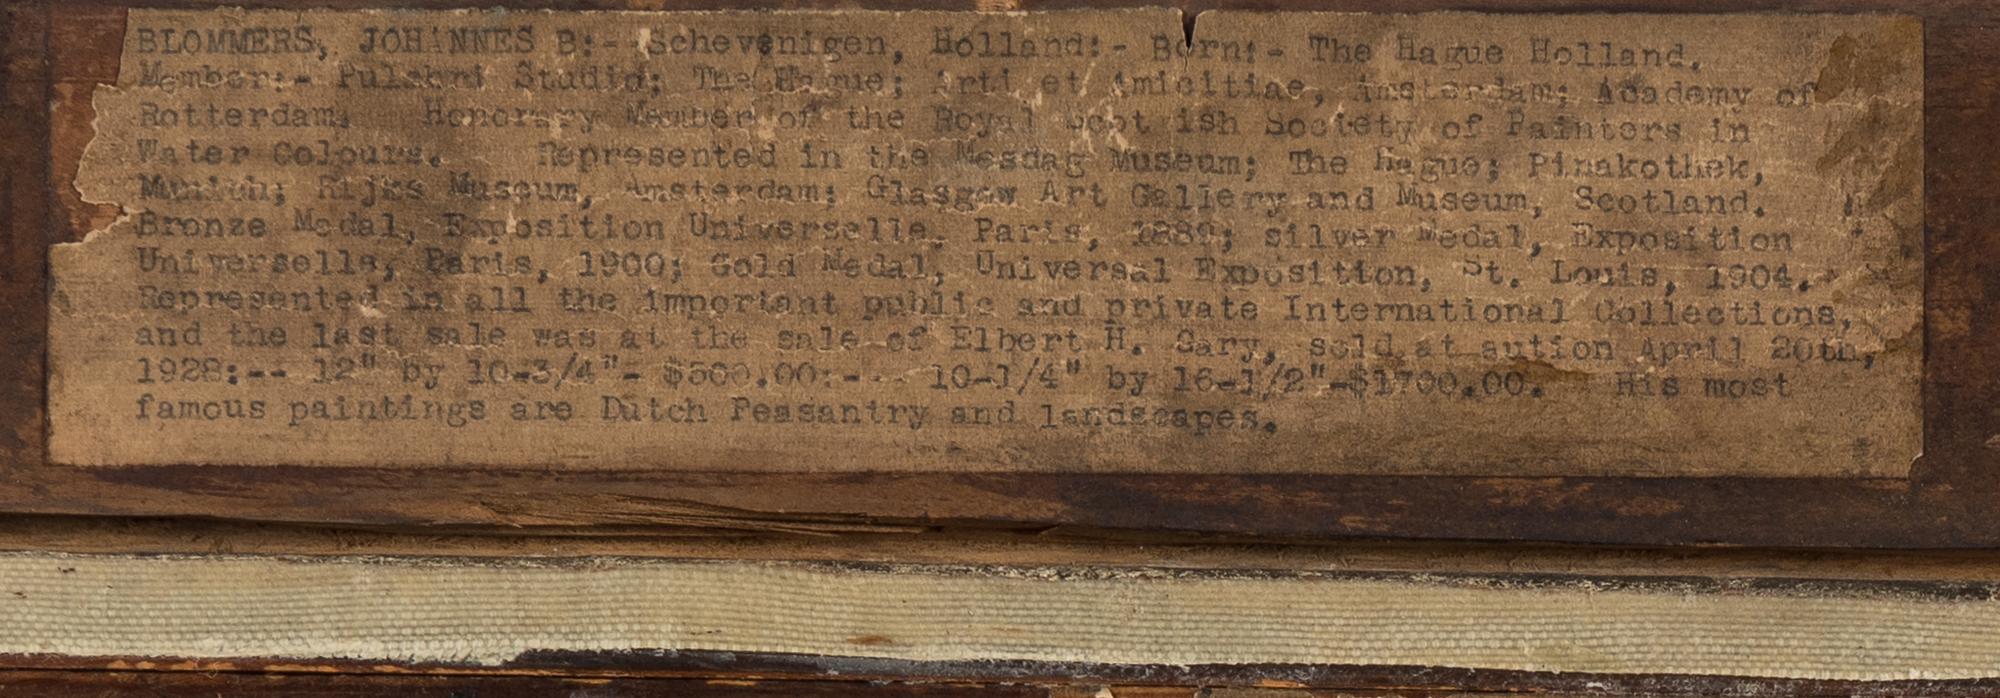 BLOMMERS, JOHANNES B:- Schevenigen, Holland:- Born:- The Hague Holland.
Member:- Pulchri Studio; The Hague; Arti et Amicitiae, Amsterdam; Academy of
Rotterdam; Honorary Member of the Royal Scottish Society of Painters in
Water Colours. Represented in the Mesdag Museum; The Hague; Pinakothek,
Munich; Rijks Museum, Amsterdam; Glasgow Art Gallery and Museum, Scotland.
Bronze Medal, Exposition Universelle, Paris, 1889; silver Medal, Exposition
Universelle, Paris, 1900; Gold Medal, Universal Exposition, St. Louis, 1904.
Represented in all the important public and private International Collections,
and the last sale was at the sale of Elbert H. Gary, sold at aution April 20th,
1928:-- 12" by 10-3/4"- $500.00:--- 10-1/4" by 16-1/2"-$1700.00. His most
famous paintings are Dutch Peasantry and landscapes.